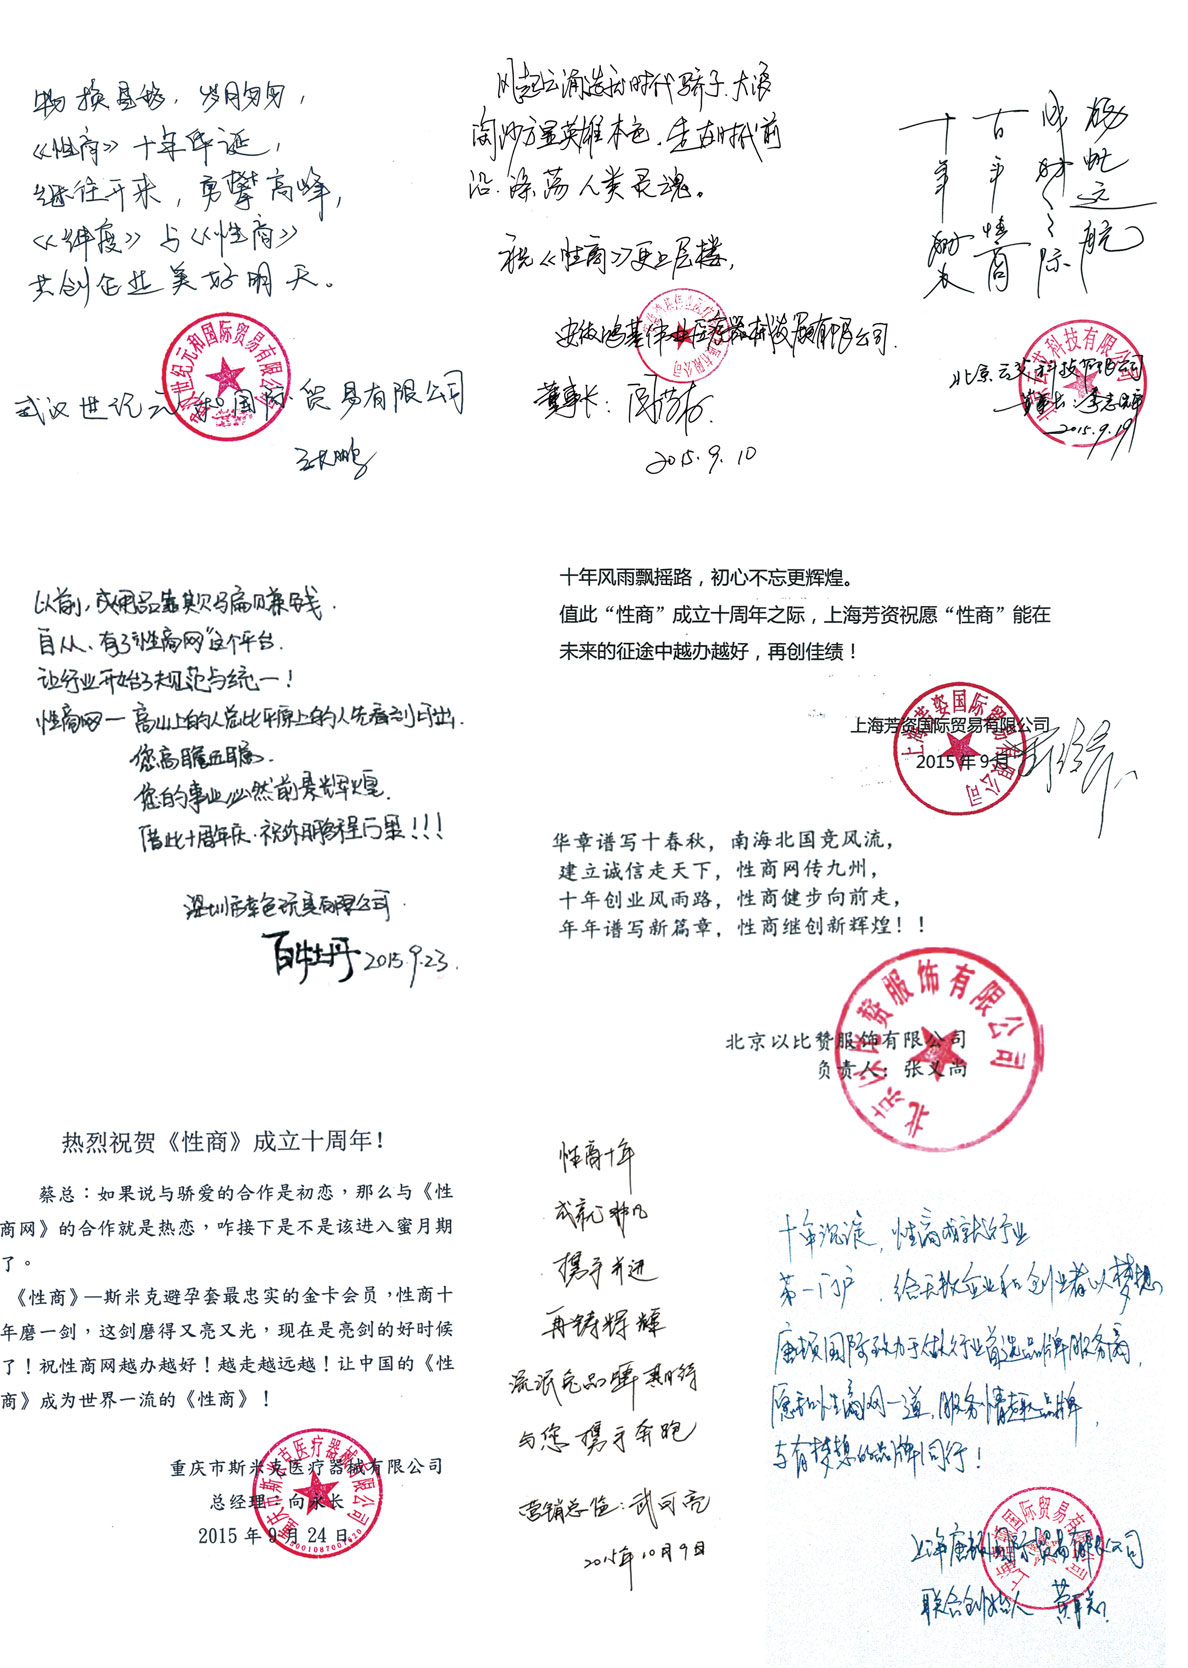 物换星移，岁月匆匆，
《性商》十年华诞，
继往开来，勇攀高峰，
《纬度》与《性商》
共创企业美好明天。
武汉世纪元和国际贸易有限公司
风起云涌造就时代骄子.大浪
淘沙方显英雄本色.走在时代前
沿.涤荡人类灵魂。
祝《性商》更上层楼,
安徽鸿基伟业医疗器械发展有限公司.
董事长:
2015.9.10
扬帆远航
成功之际
百年性商
十年
北京云艾科技有限公司
2015.9.19
以前,成用品靠欺骗赚钱.
自从,有了“性商网”这个平台.
让行业开始了规范与统一!
性商网一高山上的人总比平原上的人先看到日出.
您高瞻远瞩.
您的事业必然前景辉煌.
借此十周年庆.祝你鹏程万里!!!
深圳市幸色玩具有限公司.
百牡丹 2015.9.23.
十年风雨飘摇路，初心不忘更辉煌。
值此“性商”成立十周年之际，上海芳资祝愿“性商”能在
未来的征途中越办越好，再创佳绩！
上海芳资国际贸易有限公司
2015年9月
华章谱写十春秋，南海北国竞风流，
建立诚信走天下，性商网传九州，
十年创业风雨路，性商健步向前走，
年年谱写新篇章，性商继创新辉煌！！
北京以比赞服饰有限公司
负责人：张义尚
热烈祝贺《性商》成立十周年！
蔡总：如果说与骄爱的合作是初恋，那么与《性
商网》的合作就是热恋，咋接下是不是该进入蜜月期
了。
《性商》—斯米克避孕套最忠实的金卡会员，性商十
年磨一剑，这剑磨得又亮又光，现在是亮剑的好时候
了！祝性商网越办越好！越走越远越！让中国的《性
商》成为世界一流的《性商》！
重庆市斯米克医疗器械有限公司
总经理：向永长
2015年9月24日
性商十年
成就非凡
携手并进
再铸辉煌
流派兜品牌期待
与您携手奔跑
营销总监:武可亮
2015年10月9日
十年沉淀,性商成就行业
第一门户.给无数企业和创业者以梦想
唐顿国际致力于做行业首选品牌服务商,
愿和性商网一道,服务情趣品牌,
与有梦想的品牌同行!
上海唐顿国际贸易有限公司
联合创始人